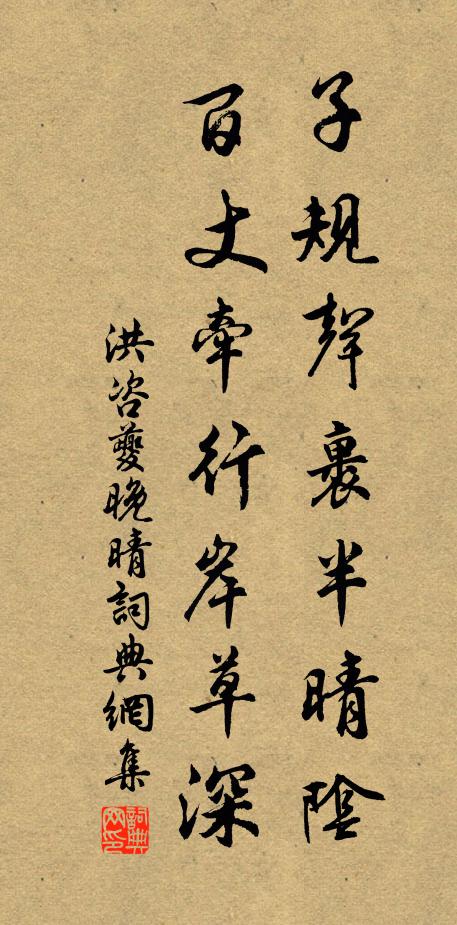 子規聲裏半晴陰
百丈牽行岸草深
洪咨夔晚晴詞典網集
詞典网印